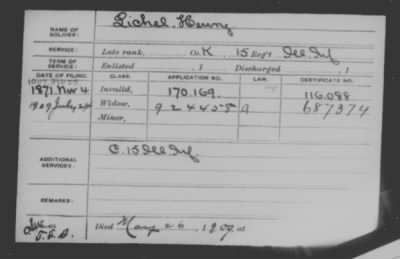 NAME OF SOLDIER: Lichel Henny
SERVICE: Late rank, , Co. K, 15 Reg't Ill Inf
TERM OF SERVICE: Enlisted , 1 Discharged , 1
DATE OF FILING. CLASS. APPLICATION NO. LAW. CERTIFICATE NO.
1871 Nov 4 Invalid, 170.169. 116.088
1909 July 24 Widow, 924408 a 687374
Minor,
ADDITIONAL SERVICES: C. 15 Ill Inf.
REMARKS:
Died May 26, 1909, at